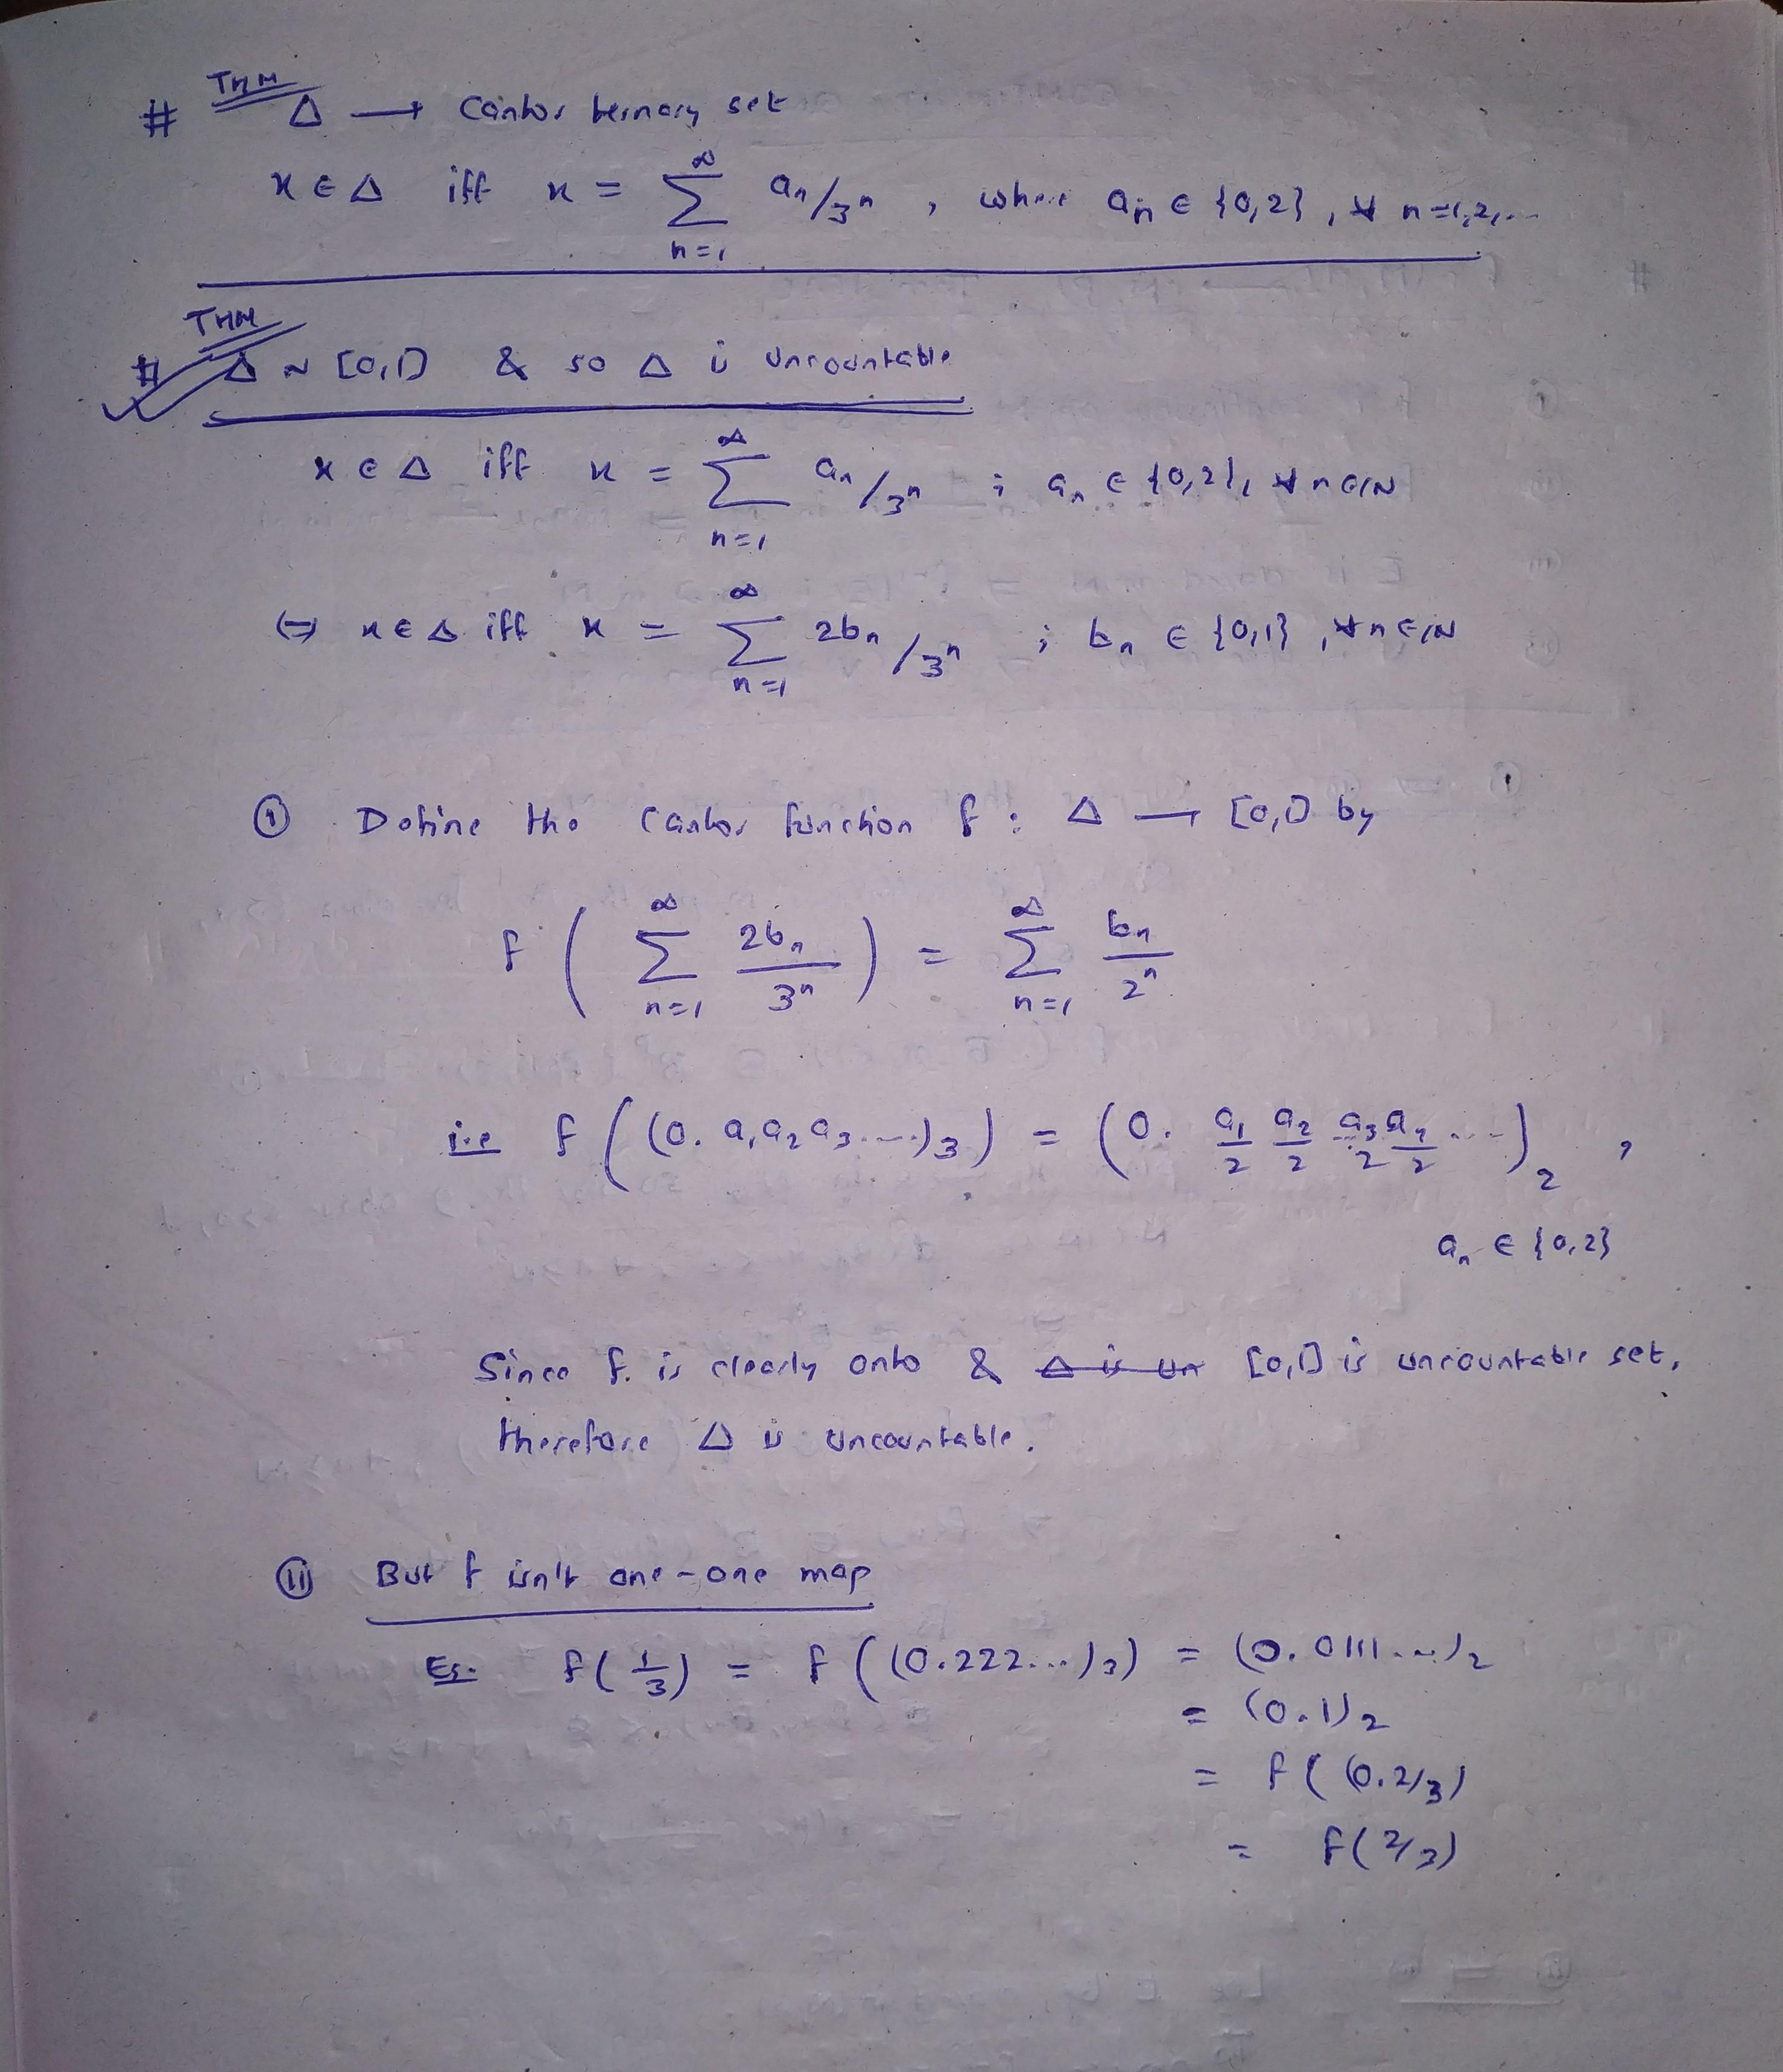 THM
# Δ → Cantor ternary set
x ∈ Δ iff x = ∑_{n=1}^{∞} aₙ/3ⁿ , where aₙ ∈ {0,2}, ∀ n=1,2,...
THM
# Δ ~ [0,1] & so Δ is uncountable
x ∈ Δ iff x = ∑_{n=1}^{∞} aₙ/3ⁿ ; aₙ ∈ {0,2}, ∀ n ∈ ℕ
⇔ x ∈ Δ iff x = ∑_{n=1}^{∞} 2bₙ/3ⁿ ; bₙ ∈ {0,1}, ∀ n ∈ ℕ
(i) Define the Cantor function f : Δ → [0,1] by
f ( ∑_{n=1}^{∞} 2bₙ/3ⁿ ) = ∑_{n=1}^{∞} bₙ/2ⁿ
i.e f ( (0. a₁a₂a₃....)₃ ) = (0. a₁/2 a₂/2 a₃/2 a₄/2 ...)₂ ,
aₙ ∈ {0,2}
Since f is clearly onto & Δ is un [0,1] is uncountable set,
therefore Δ is uncountable.
(ii) But f isn't one-one map
Eg. f(1/3) = f ( (0.222...)₃ ) = (0.0111...)₂
= (0.1)₂
= f ( (0.2)₃ )
= f(2/3)